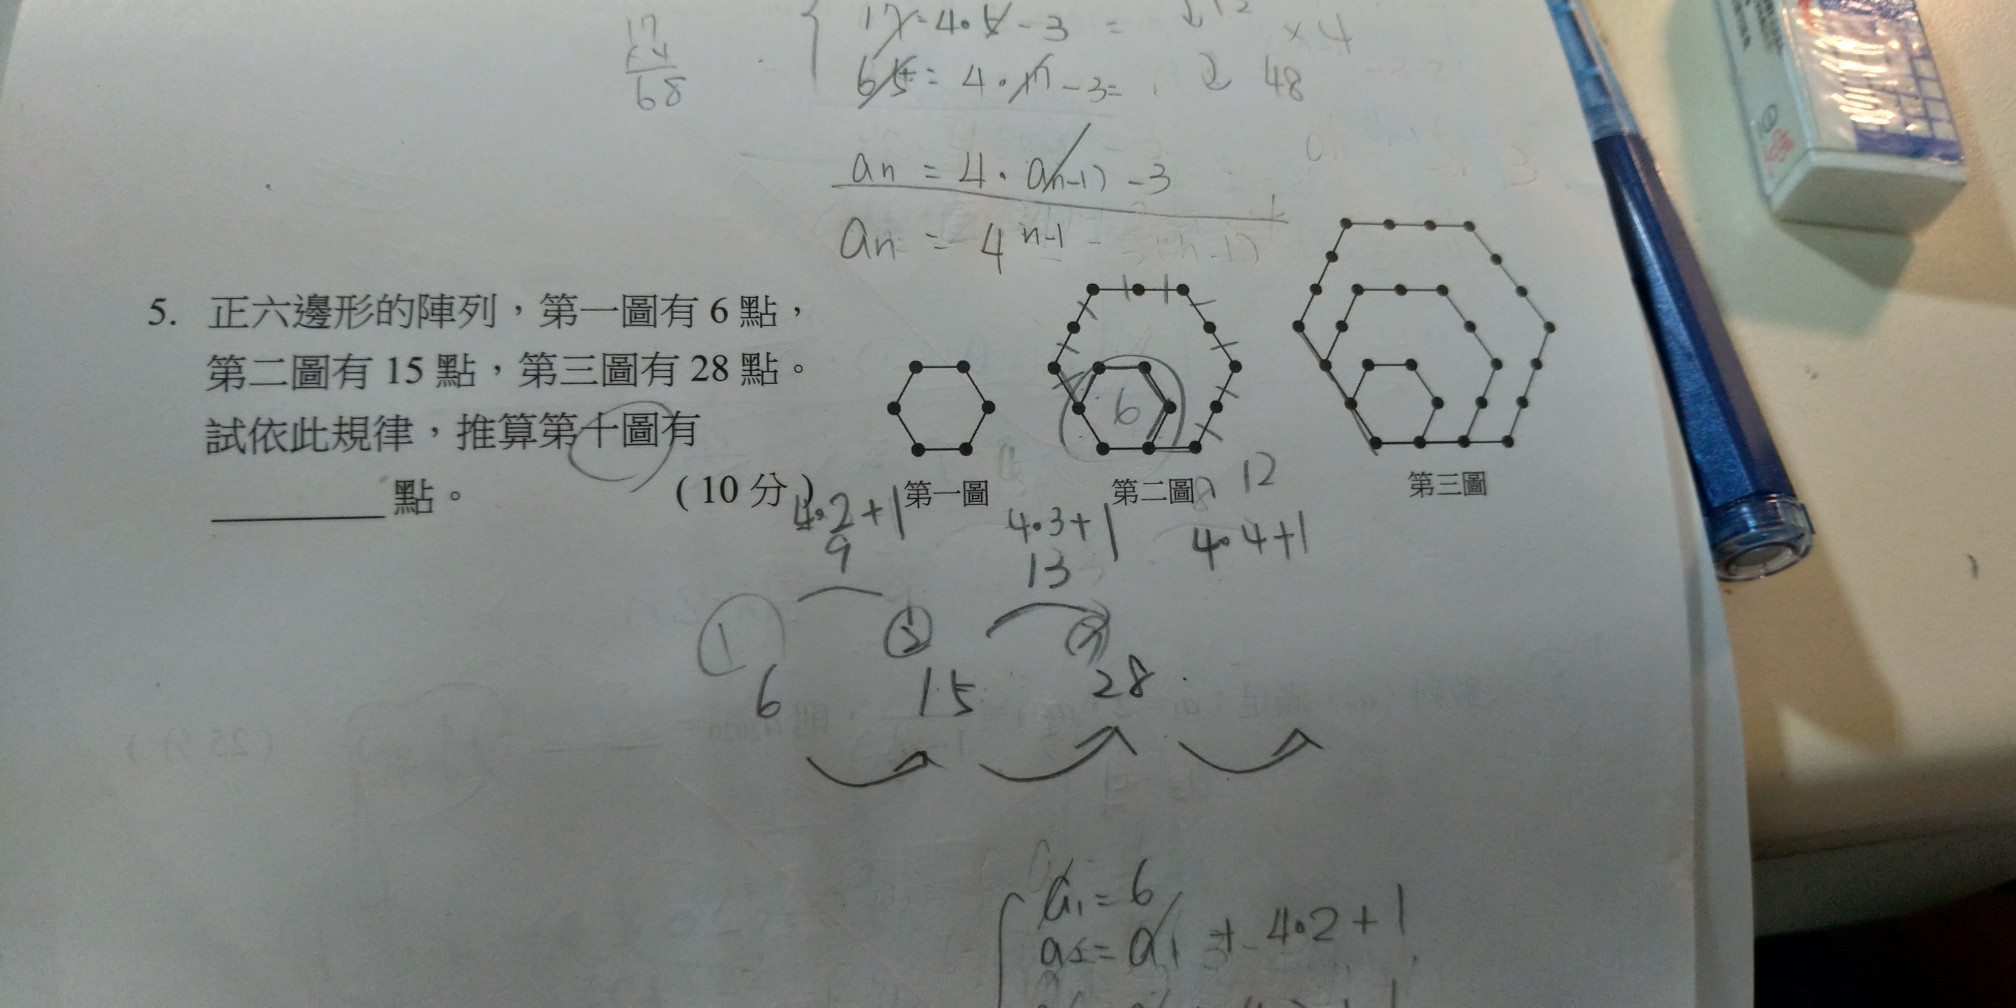 17
68
17 = 4 · 5 - 3 =
× 4
65 = 4 · 17 - 3 =
48
an = 4 · a(n-1) - 3
an = 4 n-1 -
5. 正六邊形的陣列,第一圖有 6 點,
第二圖有 15 點,第三圖有 28 點。
試依此規律,推算第十圖有
______點。
( 10 分 )
6
第一圖
第二圖
第三圖
12
4·2+1
4·3+1
4·4+1
9
13
1
2
6
15
28
a1 = 6
a2 = a1 + 4·2 + 1